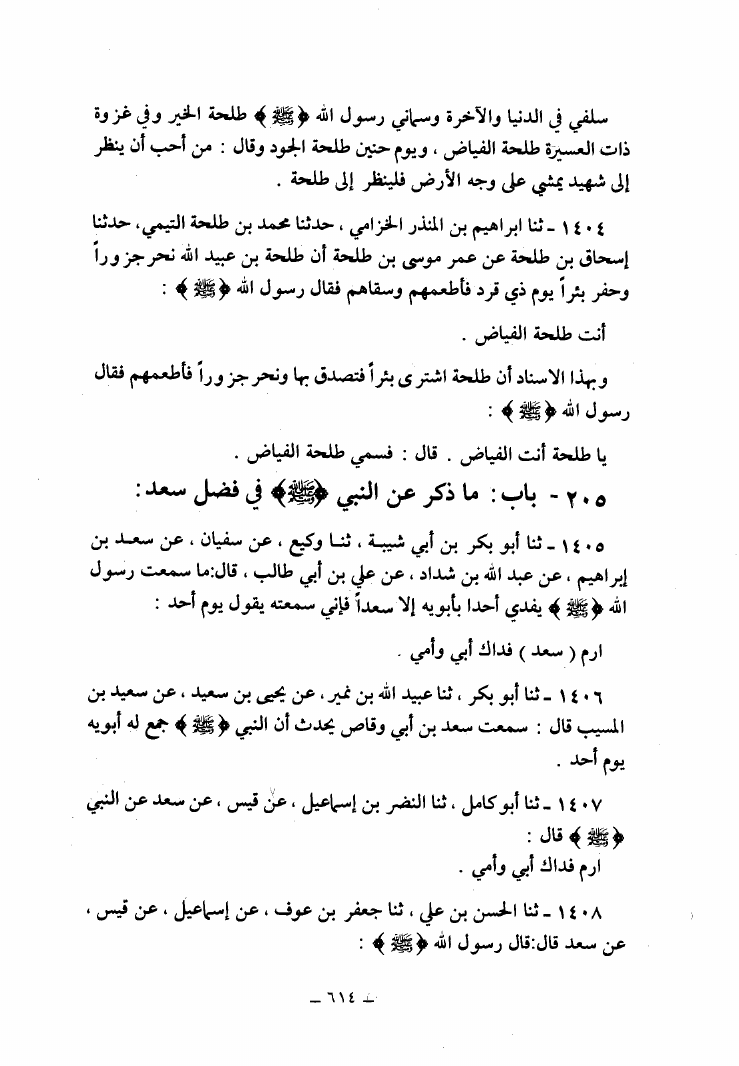 سلفي في الدنيا والآخرة وسماني رسول الله ﴿ﷺ﴾ طلحة الخير وفي غزوة
ذات العسيرة طلحة الفياض ، ويوم حنين طلحة الجود وقال : من أحب أن ينظر
إلى شهيد يمشي على وجه الأرض فلينظر إلى طلحة .
١٤٠٤ ـ ثنا ابراهيم بن المنذر الخزامي ، حدثنا محمد بن طلحة التيمي، حدثنا
إسحاق بن طلحة عن عمر موسى بن طلحة أن طلحة بن عبيد الله نحر جزوراً
وحفر بئراً يوم ذي قرد فأطعمهم وسقاهم فقال رسول الله ﴿ﷺ﴾ :
أنت طلحة الفياض .
وبهذا الاسناد أن طلحة اشترى بئراً فتصدق بها ونحر جزوراً فأطعمهم فقال
رسول الله ﴿ﷺ﴾ :
يا طلحة أنت الفياض . قال : فسمي طلحة الفياض .
٢٠٥ - باب: ما ذكر عن النبي ﴿ﷺ﴾ في فضل سعد:
١٤٠٥ ـ ثنا أبو بكر بن أبي شيبة ، ثنا وكيع ، عن سفيان ، عن سعد بن
إبراهيم ، عن عبد الله بن شداد ، عن علي بن أبي طالب ، قال:ما سمعت رسول
الله ﴿ﷺ﴾ يفدي أحدا بأبويه إلا سعداً فإني سمعته يقول يوم أحد :
ارم ( سعد ) فداك أبي وأمي .
١٤٠٦ ـ ثنا أبو بكر ، ثنا عبيد الله بن نمير، عن يحيى بن سعيد ، عن سعيد بن
المسيب قال : سمعت سعد بن أبي وقاص يحدث أن النبي ﴿ﷺ﴾ جمع له أبويه
يوم أحد .
١٤٠٧ ـ ثنا أبو كامل ، ثنا النضر بن إسماعيل ، عن قيس ، عن سعد عن النبي
﴿ﷺ﴾ قال :
ارم فداك أبي وأمي .
١٤٠٨ ـ ثنا الحسن بن علي ، ثنا جعفر بن عوف ، عن إسماعيل ، عن قيس ،
عن سعد قال:قال رسول الله ﴿ﷺ﴾ :
ـ ٦١٤ ـ